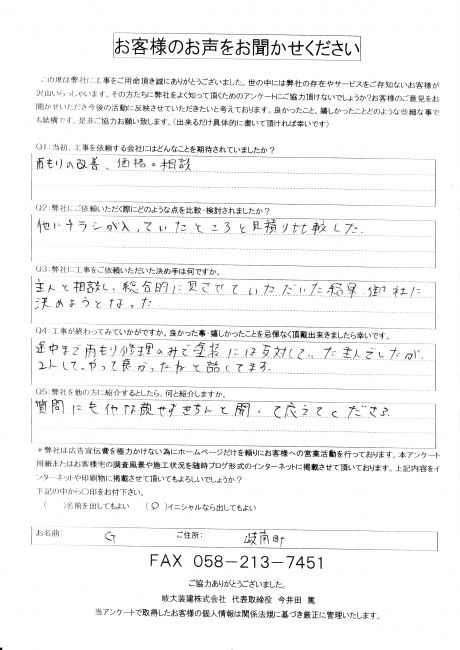 お客様のお声をお聞かせください
この度は弊社に工事をご用命頂き誠にありがとうございました。世の中には弊社の存在やサービスをご存知ないお客様が
沢山いらっしゃいます。その方たちに弊社をよく知って頂くためのアンケートにご協力頂けないでしょうか?お客様のご意見をお
聞かせいただき今後の活動に反映させていただきたいと考えております。良かったこと、嬉しかったことどのような些細な事で
も結構です、是非ご協力お願い致します。(出来るだけ具体的に書いて頂ければ幸いです)
Q1:当初、工事を依頼する会社にはどんなことを期待されていましたか?
雨もりの改善、価格の相談
Q2:弊社にご依頼いただく際にどのような点を比較・検討されましたか?
他にチラシが入っていたところと見積り比較した。
Q3:弊社に工事をご依頼いただいた決め手は何ですか。
主人と相談し、総合的に見させていただいた結果、御社に
決めようとなった
Q4:工事が終わってみていかがですか。良かった事・嬉しかったことを忌憚なく頂戴出来きましたら幸いです。
途中まで雨もり修理のみで塗装には反対していた主人でしたが、
2人して、やって良かったねと話してます。
Q5:弊社を他の方に紹介するとしたら、何と紹介しますか。
質問にもイヤな顔せずきちんと聞いて応えてくださる
*弊社は広告宣伝費を極力かけない為にホームページだけを頼りにお客様への営業活動を行っております。本アンケート
用紙またはお客様宅の調査風景や施工状況を随時ブログ形式のインターネットに掲載させて頂いております。上記内容をイ
ンターネットや印刷物に掲載させて頂いてもよろしいでしょうか?
下記の中から〇印をお付下さい。
( )名前を出してもよい (○)イニシャルなら出してもよい
お名前: G ご住所: 岐南町
FAX 058-213-7451
ご協力ありがとうございました。
岐大装建株式会社 代表取締役 今井田 篤
当アンケートで取得したお客様の個人情報は関係法規に基づき厳正に管理いたします。